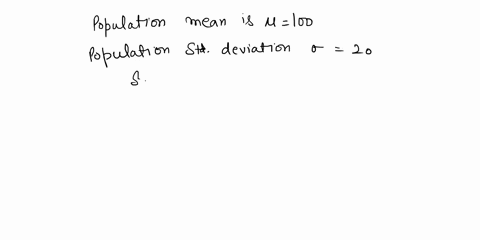 Population mean is μ=100
Population Std. deviation σ = 20
S